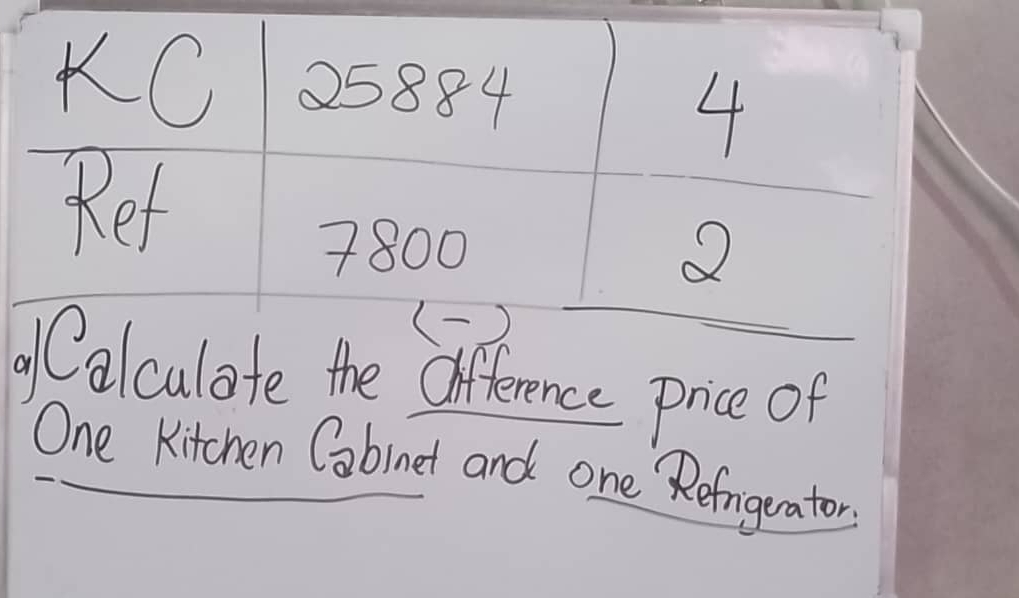 KC 25884 4
Ref 7800 2
(-)
a) Calculate the difference price of
One Kitchen Cabinet and one Refrigerator.